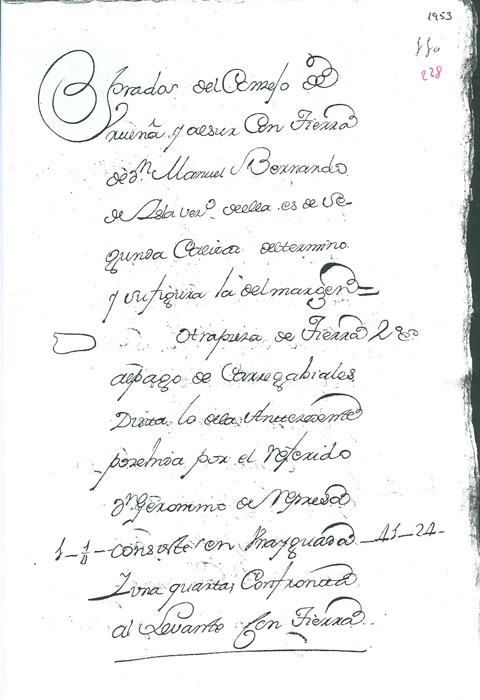 1953
228
Prados del Conzejo de
rueña y al sur Con Tierra
de Dn. Manuel Bernardo
de Isla vezo. de ella. es de se-
gunda Calidad del termino
y su figura la del margen =
Otra pieza de Tierra 2
al pago de Carregabiales
Dista lo de la Antecedente
posehida por el referido
Dn. Geronimo de
1 - 1/4 - consiste en Una yguada
Y una quarta; Confronta
al Levante Con Tierra